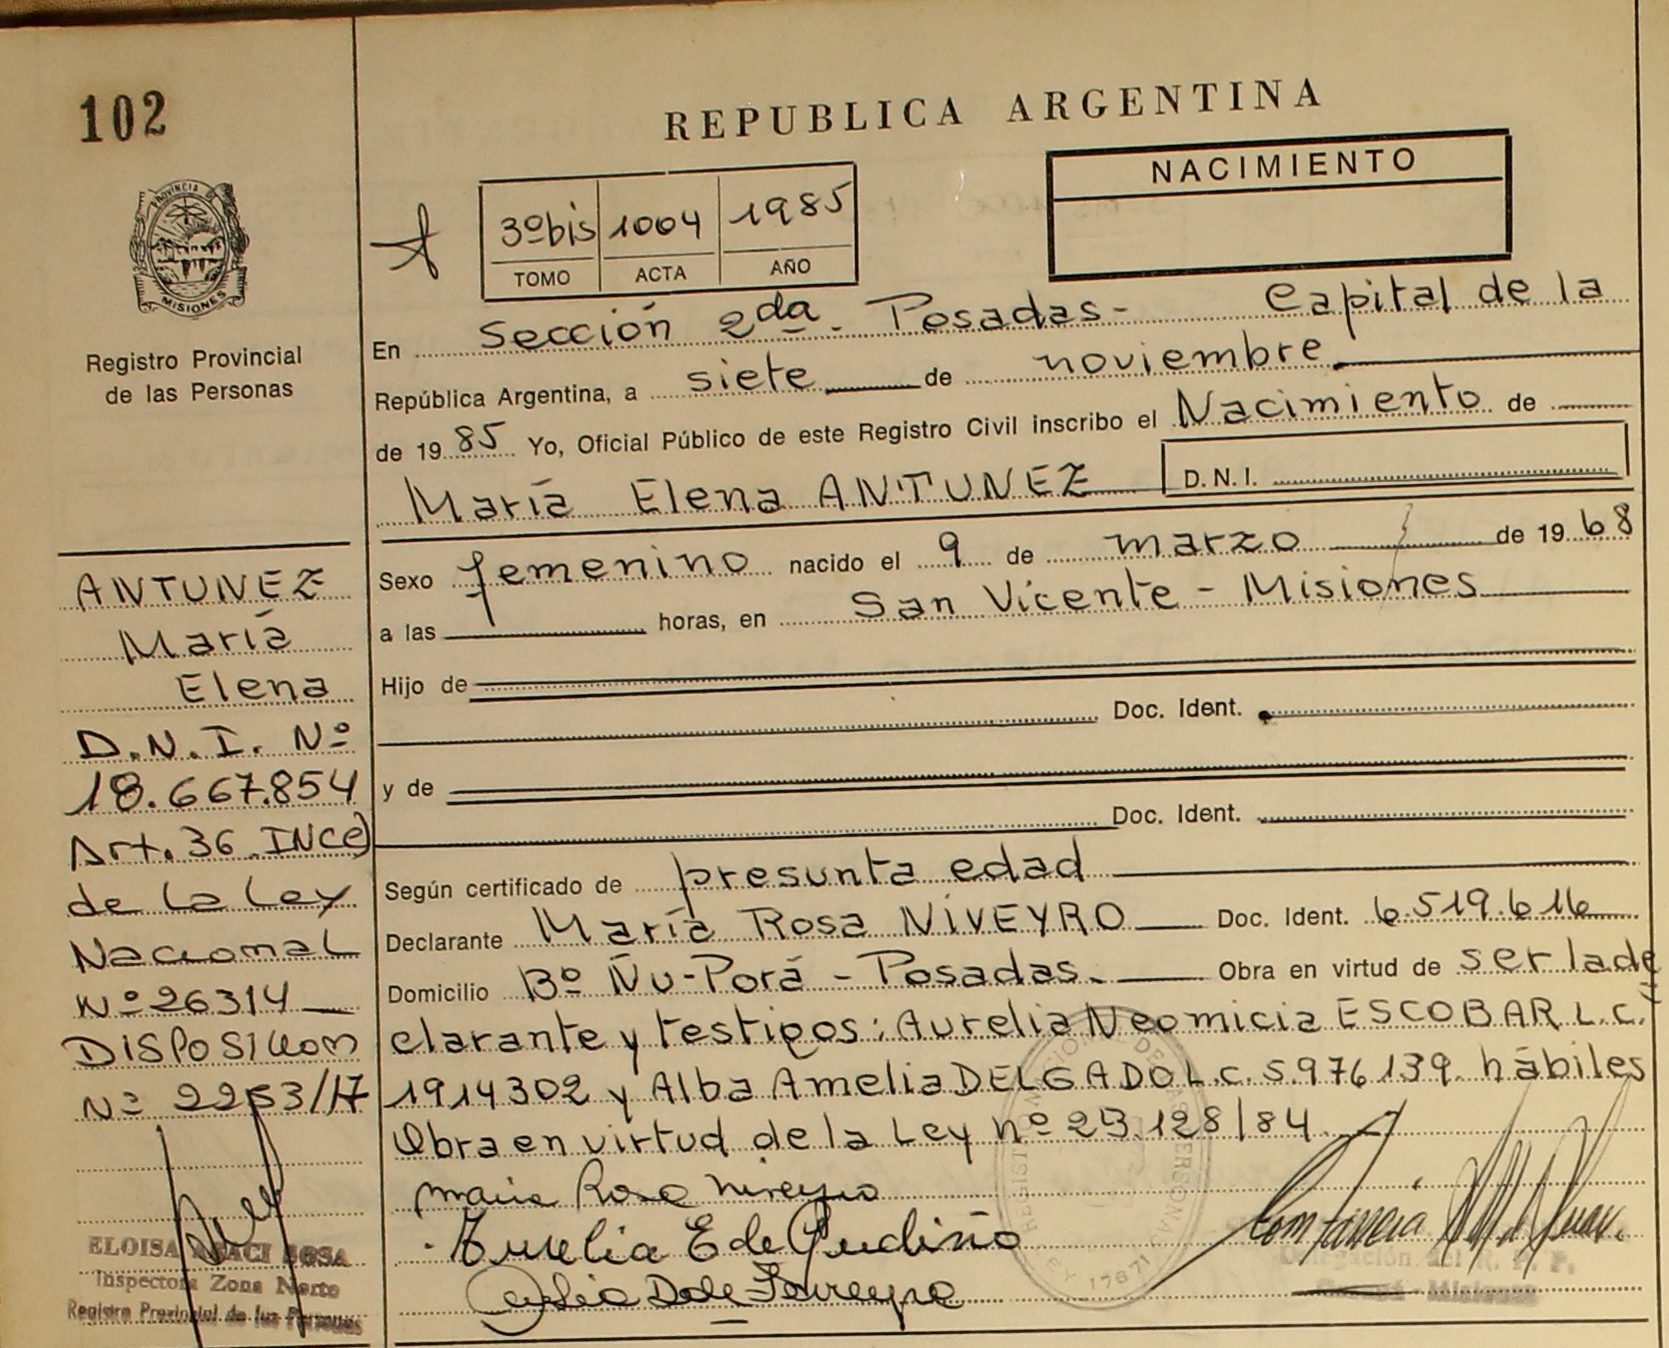 102
REPUBLICA ARGENTINA
NACIMIENTO
3º bis 1004 1985
TOMO ACTA AÑO
PROVINCIA
MISIONES
Registro Provincial
de las Personas
En Sección 2da. Posadas - Capital de la
República Argentina, a siete de noviembre
de 1985 Yo, Oficial Público de este Registro Civil inscribo el Nacimiento de
María Elena ANTUNEZ D.N.I.
Sexo femenino nacido el 9 de marzo de 1968
a las horas, en San Vicente - Misiones
Hijo de
Doc. Ident.
y de
Doc. Ident.
Según certificado de presunta edad
Declarante María Rosa NIVEYRO Doc. Ident. 6.519.616
Domicilio Bº Ñu-Porá - Posadas. Obra en virtud de ser la de
clarante y testigos: Aurelia Neomicia ESCOBAR L.C.
1914302 y Alba Amelia DELGADO L.C. 5.976.139. hábiles
Obra en virtud de la Ley nº 23.128/84
Maria Rosa Niveyro
Aurelia E de Gudiño
D de Ferreyra
ANTUNEZ
María
Elena
D.N.I. Nº
18.667.854
Art. 36. INC e)
de la Ley
Nacional
Nº 26314
DISPOSICION
Nº 2253/17
ELOISA BOSA
Inspectora Zona Norte
Registro Provincial de las Personas
LEY 17671
Delegación del R. P. P.
Misiones